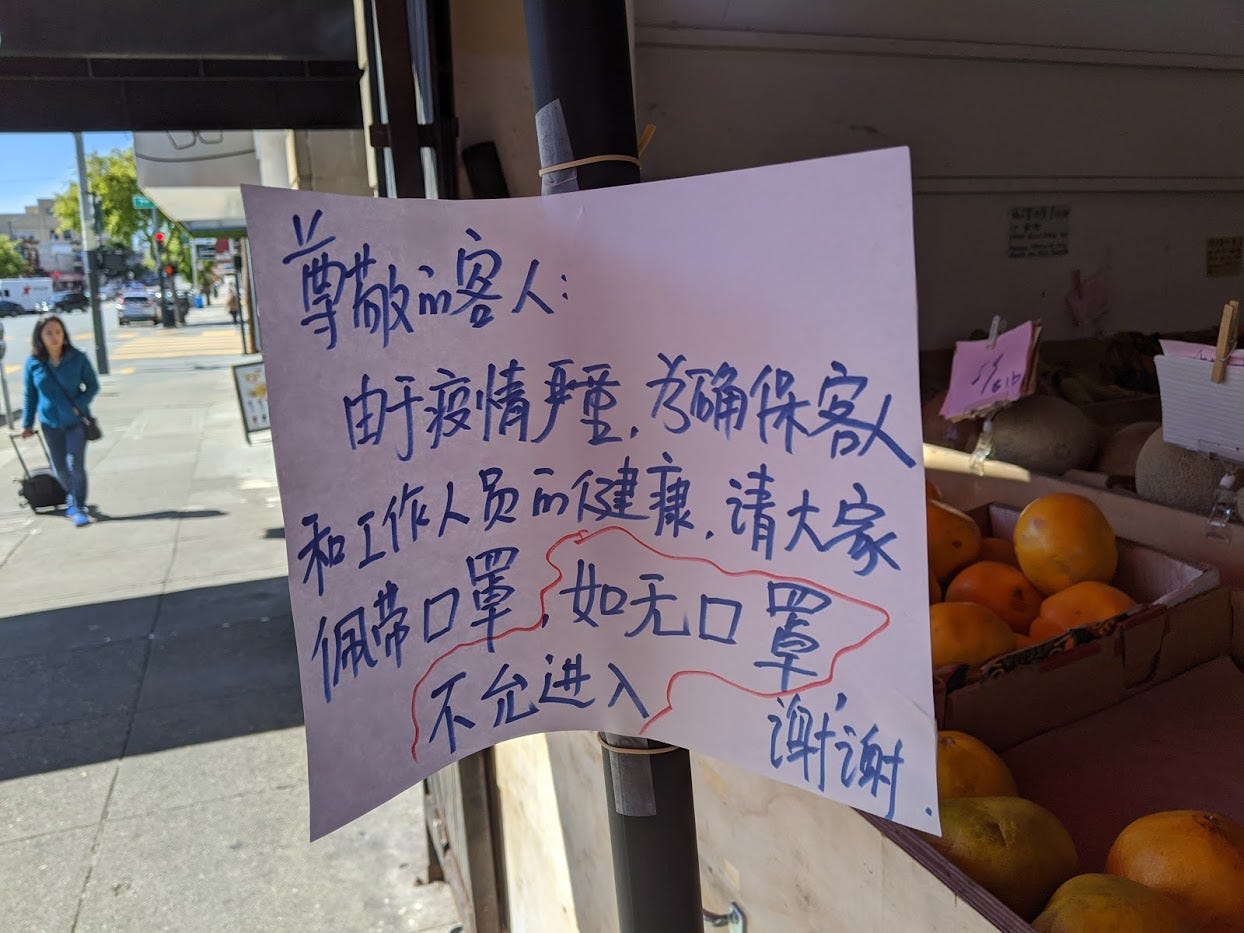 尊敬的客人:
由于疫情严重,为确保客人
和工作人员的健康,请大家
佩带口罩,如无口罩
不允进入,
谢谢.